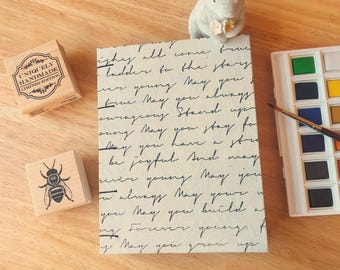 UNIQUELY
HANDMADE
LIMITED EDITION
ishes all come true
ladder to the stars
er young May you
true May you always
ourageous Stand up
ung May you stay fo
May you have a stro
be joyful And may
ever young May you
u always May your w
you May you build a
ng Forever young
May you grow up